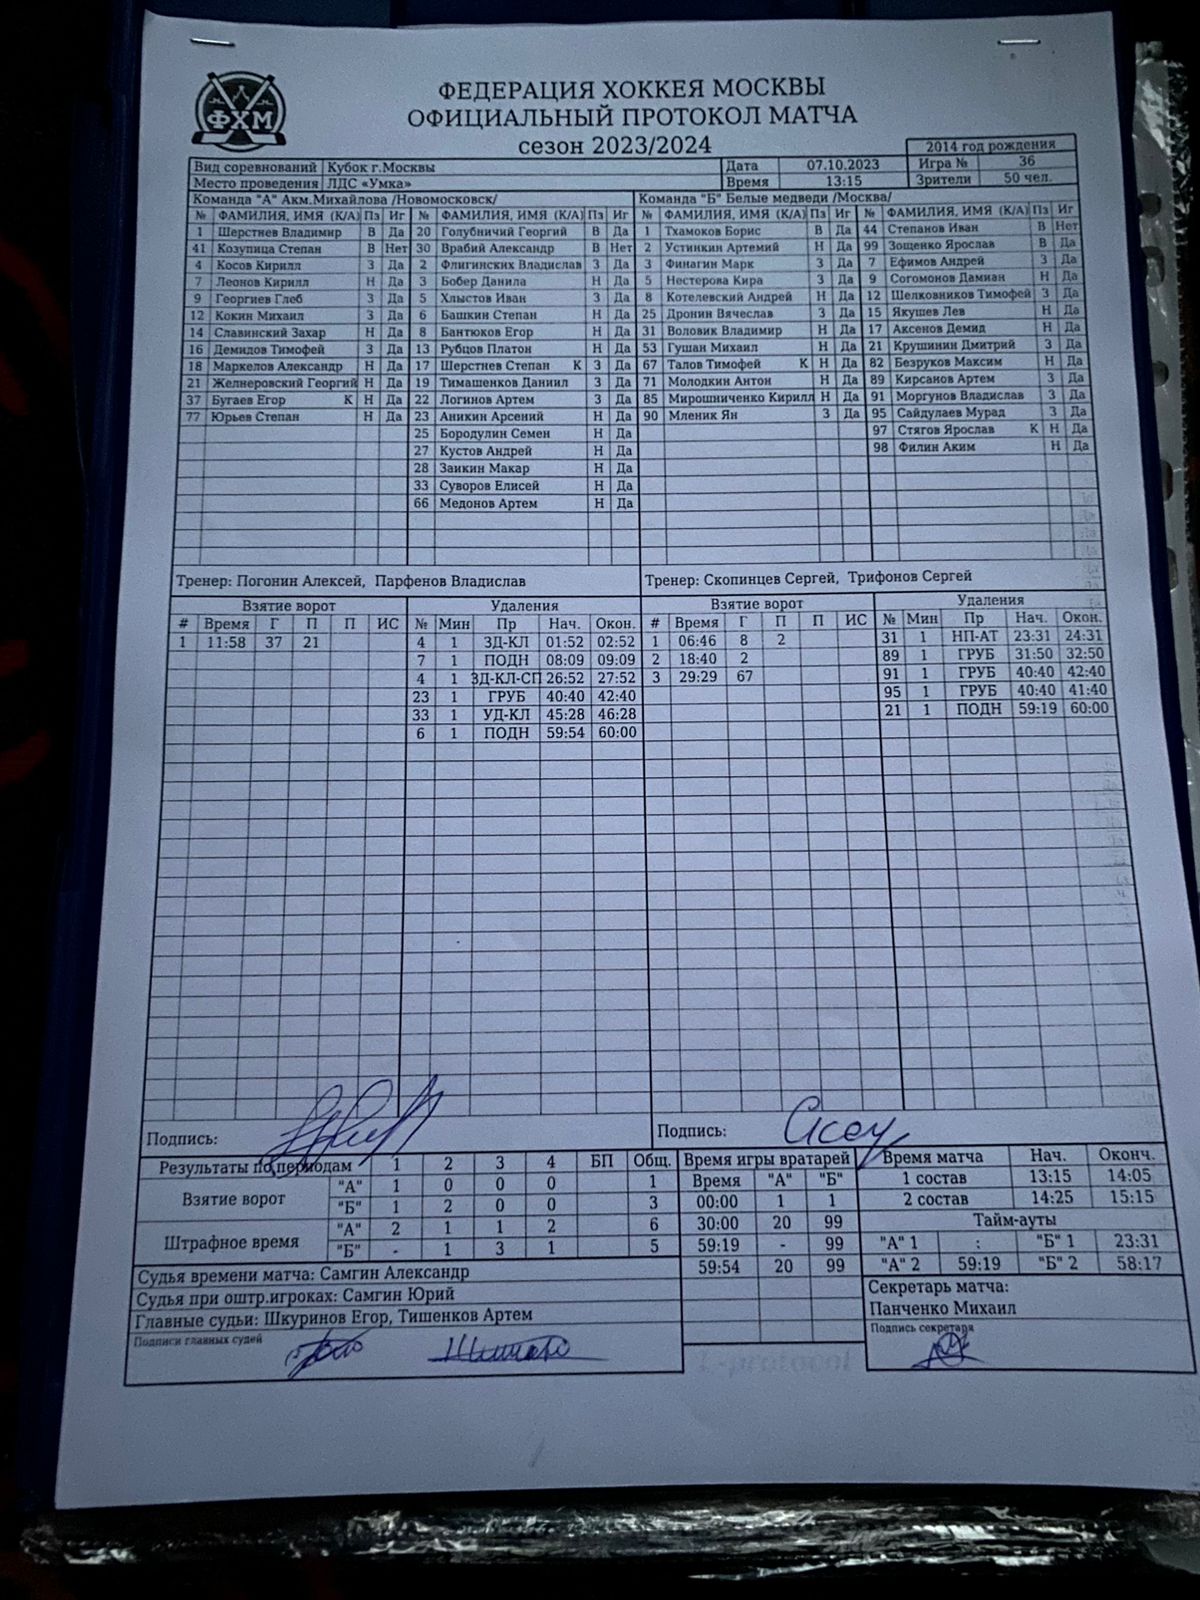 ФХМ
ФЕДЕРАЦИЯ ХОККЕЯ МОСКВЫ
ОФИЦИАЛЬНЫЙ ПРОТОКОЛ МАТЧА
сезон 2023/2024
2014 год рождения
Вид соревнований Кубок г.Москвы Дата 07.10.2023 Игра № 36
Место проведения ЛДС «Умка» Время 13:15 Зрители 50 чел.
Команда "А" Акм.Михайлова /Новомосковск/ Команда "Б" Белые медведи /Москва/
№ ФАМИЛИЯ, ИМЯ (К/А) Пз Иг № ФАМИЛИЯ, ИМЯ (К/А) Пз Иг № ФАМИЛИЯ, ИМЯ (К/А) Пз Иг № ФАМИЛИЯ, ИМЯ (К/А) Пз Иг
1 Шерстнев Владимир В Да 20 Голубничий Георгий В Да 1 Тхамоков Борис В Да 44 Степанов Иван В Нет
41 Козупица Степан В Нет 30 Врабий Александр В Нет 2 Устинкин Артемий Н Да 99 Зощенко Ярослав В Да
4 Косов Кирилл З Да 2 Флигинских Владислав З Да 3 Финагин Марк З Да 7 Ефимов Андрей З Да
7 Леонов Кирилл Н Да 3 Бобер Данила Н Да 5 Нестерова Кира З Да 9 Согомонов Дамиан Н Да
9 Георгиев Глеб З Да 5 Хлыстов Иван З Да 8 Котелевский Андрей Н Да 12 Шелковников Тимофей З Да
12 Кокин Михаил З Да 6 Башкин Степан Н Да 25 Дронин Вячеслав З Да 15 Якушев Лев Н Да
14 Славинский Захар Н Да 8 Бантюков Егор Н Да 31 Воловик Владимир Н Да 17 Аксенов Демид Н Да
16 Демидов Тимофей З Да 13 Рубцов Платон Н Да 53 Гушан Михаил Н Да 21 Крушинин Дмитрий З Да
18 Маркелов Александр Н Да 17 Шерстнев Степан К З Да 67 Талов Тимофей К Н Да 82 Безруков Максим Н Да
21 Желнеровский Георгий Н Да 19 Тимашенков Даниил З Да 71 Молодкин Антон Н Да 89 Кирсанов Артем З Да
37 Бугаев Егор К Н Да 22 Логинов Артем З Да 85 Мирошниченко Кирилл Н Да 91 Моргунов Владислав З Да
77 Юрьев Степан Н Да 23 Аникин Арсений Н Да 90 Мленик Ян З Да 95 Сайдулаев Мурад З Да
25 Бородулин Семен Н Да 97 Стягов Ярослав К Н Да
27 Кустов Андрей Н Да 98 Филин Аким Н Да
28 Заикин Макар Н Да
33 Суворов Елисей Н Да
66 Медонов Артем Н Да
Тренер: Погонин Алексей, Парфенов Владислав Тренер: Скопинцев Сергей, Трифонов Сергей
Взятие ворот Удаления Взятие ворот Удаления
# Время Г П П ИС № Мин Пр Нач. Окон. # Время Г П П ИС № Мин Пр Нач. Окон.
1 11:58 37 21 4 1 ЗД-КЛ 01:52 02:52 1 06:46 8 2 31 1 НП-АТ 23:31 24:31
7 1 ПОДН 08:09 09:09 2 18:40 2 89 1 ГРУБ 31:50 32:50
4 1 ЗД-КЛ-СП 26:52 27:52 3 29:29 67 91 1 ГРУБ 40:40 42:40
23 1 ГРУБ 40:40 42:40 95 1 ГРУБ 40:40 41:40
33 1 УД-КЛ 45:28 46:28 21 1 ПОДН 59:19 60:00
6 1 ПОДН 59:54 60:00
Подпись: Подпись:
Результаты по периодам 1 2 3 4 БП Общ. Время игры вратарей Время матча Нач. Оконч.
Взятие ворот "А" 1 0 0 0 1 Время "А" "Б" 1 состав 13:15 14:05
"Б" 1 2 0 0 3 00:00 1 1 2 состав 14:25 15:15
Штрафное время "А" 2 1 1 2 6 30:00 20 99 Тайм-ауты
"Б" - 1 3 1 5 59:19 - 99 "А" 1 : "Б" 1 23:31
59:54 20 99 "А" 2 59:19 "Б" 2 58:17
Судья времени матча: Самгин Александр
Судья при оштр.игроках: Самгин Юрий
Главные судьи: Шкуринов Егор, Тишенков Артем
Подписи главных судей
Секретарь матча:
Панченко Михаил
Подпись секретаря